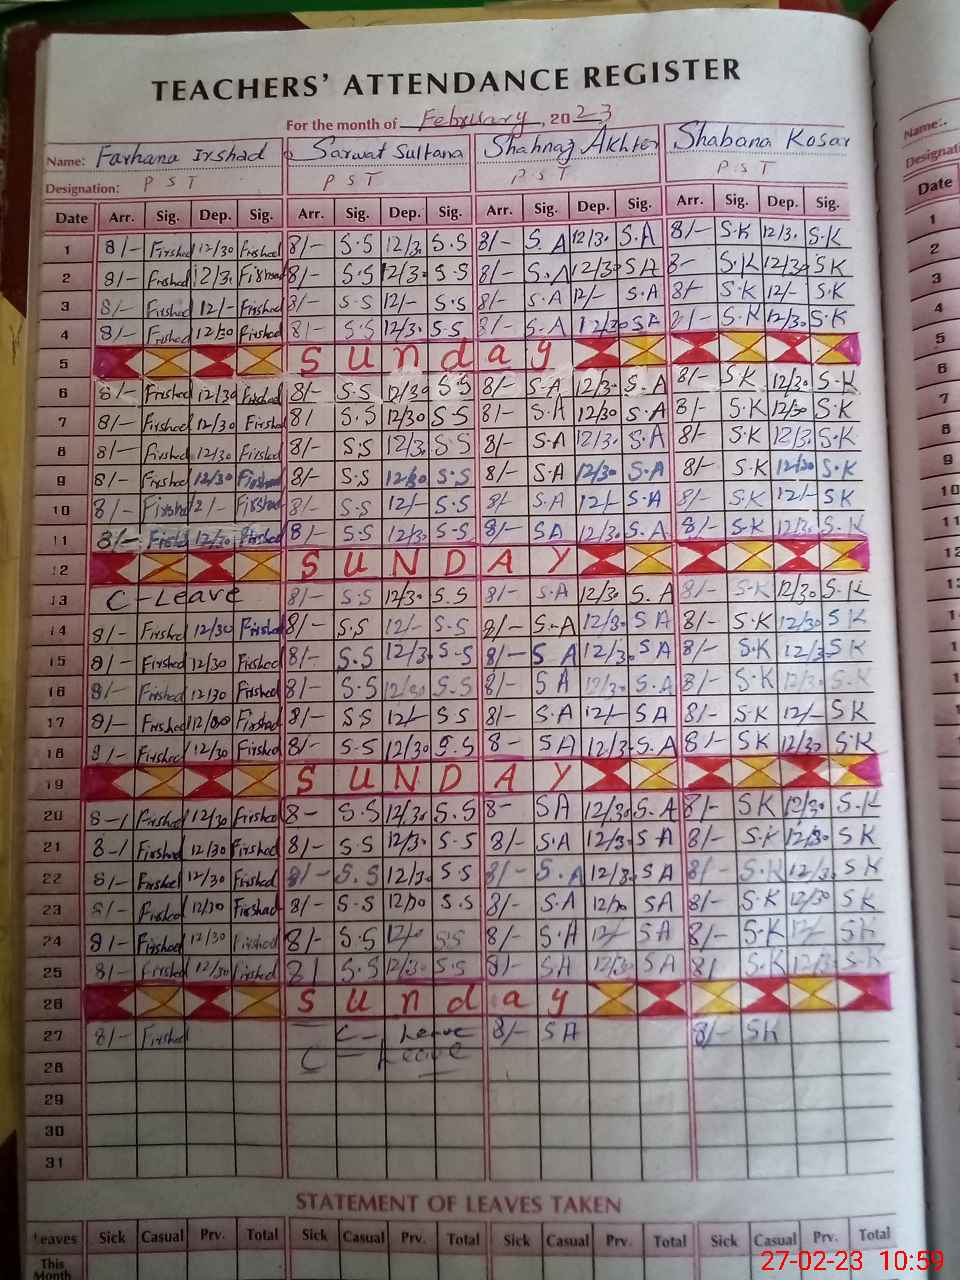 TEACHERS' ATTENDANCE REGISTER
For the month of February, 2023
Name: Farhana Irshad Sarwat Sultana Shahnaz Akhter Shabana Kosar Name:
Designation: P S T P S T P S T P S T
Date Arr. Sig. Dep. Sig. Arr. Sig. Dep. Sig. Arr. Sig. Dep. Sig. Arr. Sig. Dep. Sig. Date
1 8/- Firshed 12/30 Firshed 8/- S.S 12/3. S.S 8/- S.A 12/3. S.A 8/- S.K 12/3. S.K 1
2 8/- Firshed 12/3. Firshed 8/- S.S 12/3. S.S 8/- S.A 12/30 SA 8- S.K 12/30 SK 2
3 8/- Firshed 12/- Firshed 8/- S.S 12/- S.S 8/- S.A 12/- S.A 8/- S.K 12/- S.K 3
4 8/- Firshed 12/30 Firshed 8/- S.S 12/3. S.S 8/- S.A 12/30 SA 8/- S.K 12/3. S.K 4
5 Sunday 5
6 8/- Firshed 12/30 Firshed 8/- S.S 12/30 S.S 8/- S.A 12/3. S.A 8/- SK 12/30 S.K 6
7 8/- Firshed 12/30 Firshed 8/ S.S 12/30 S.S 8/- S.A 12/30 S.A 8/- S.K 12/30 S.K 7
8 8/- Firshed 12/30 Firshed 8/- S.S 12/3. S.S 8/- S.A 12/3. S.A 8/- S.K 12/3. S.K 8
9 8/- Firshed 12/30 Firshed 8/- S.S 12/30 S.S 8/- S.A 12/30 S.A 8/- S.K 12/30 S.K 9
10 8/- Firshed 2/- Firshed 8/- S.S 12/- S.S 8/- S.A 12/- S.A 8/- S.K 12/- SK 10
11 8/- 12/30 Firshed 8/- S.S 12/30 S.S 8/- SA 12/30 S.A 8/- S.K 12/30 S.K 11
12 SUNDAY 12
13 C-Leave 8/- S.S 12/30 S.S 8/- S.A 12/30 S.A 8/- S.K 12/30 S.K
14 8/- Firshed 12/30 Firshed 8/- S.S 12/- S.S 8/- S.A 12/30 SA 8/- S.K 12/30 SK
15 8/- Firshed 12/30 Firshed 8/- S.S 12/3. S.S 8/- S A 12/3. SA 8/- S.K 12/3. SK
16 8/- Firshed 12/30 Firshed 8/- S.S 12/30 S.S 8/- SA 12/3. S.A 8/- S.K 12/30 S.K
17 8/- Firshed Firshed 8/- SS 12/- SS 8/- S.A 12/- SA 8/- S.K 12/- SK
18 8/- Firshed 12/30 Firshed 8/- S.S 12/30 S.S 8- SA 12/3. S.A 8/- SK 12/30 S.K
19 SUNDAY
20 8-/ Firshed 12/30 Firshed 8- S.S 12/30 S.S 8- SA 12/30 S.A 8/- SK 12/30 S.K
21 8-/ Firshed 12/30 Firshed 8/- S.S 12/30 S.S 8/- S.A 12/30 SA 8/- S.K 12/30 SK
22 8/- Firshed 12/30 Firshed 8/- S.S 12/3. S.S 8/- S.A 12/3. SA 8/- S.K 12/3. SK
23 8/- Firshed 12/30 Firshed 8/- S.S S.S 8/- S.A SA 8/- S.K 12/30 SK
24 8/- Firshed 12/30 Firshed 8/- S.S S.S 8/- S.A 12/- SA 8/- S.K 12/- SK
25 8/- Firshed 12/30 Firshed 8/ S.S 12/30 S.S 8/- SA 12/30 SA 8/ S.K 12/30 S.K
26 Sunday
27 8/- Firshed C- Leave 8/- SA 8/- SK
28 C - Leave
29
30
31
STATEMENT OF LEAVES TAKEN
Leaves Sick Casual Prv. Total Sick Casual Prv. Total Sick Casual Prv. Total Sick Casual Prv. Total
This
Month
27-02-23 10:59